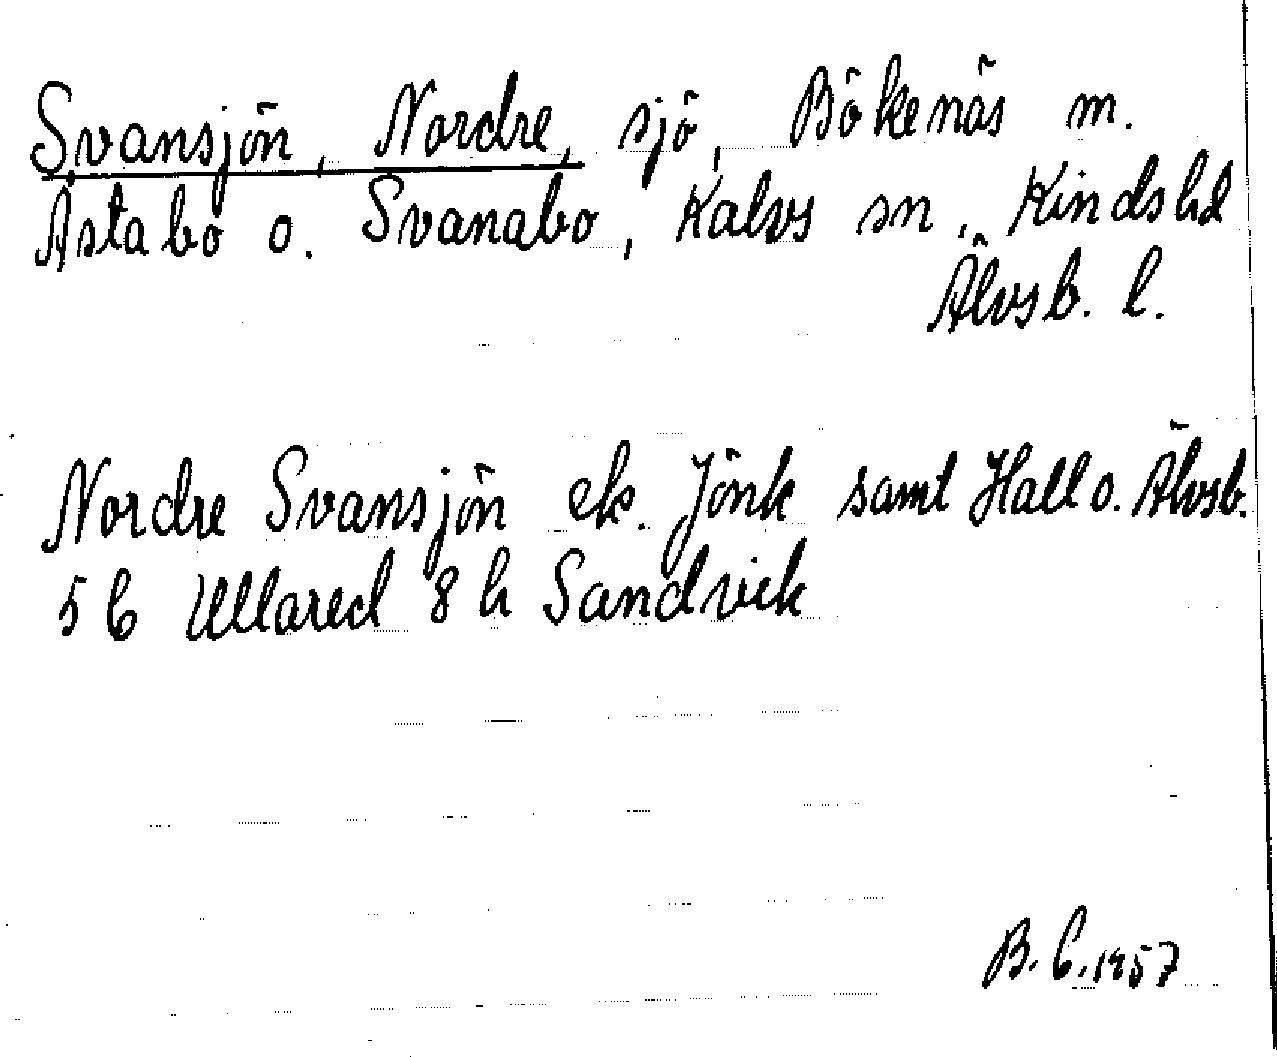 Svansjön, Nordre, sjö, Bökenäs m.
Åstabo o. Svanabo, Kalvs sn, Kinds hd
Älvsb. l.
Nordre Svansjön ek. Jönk samt Hall o. Älvsb.
5 C Ullared 8 h Sandvik
B. C. 1957